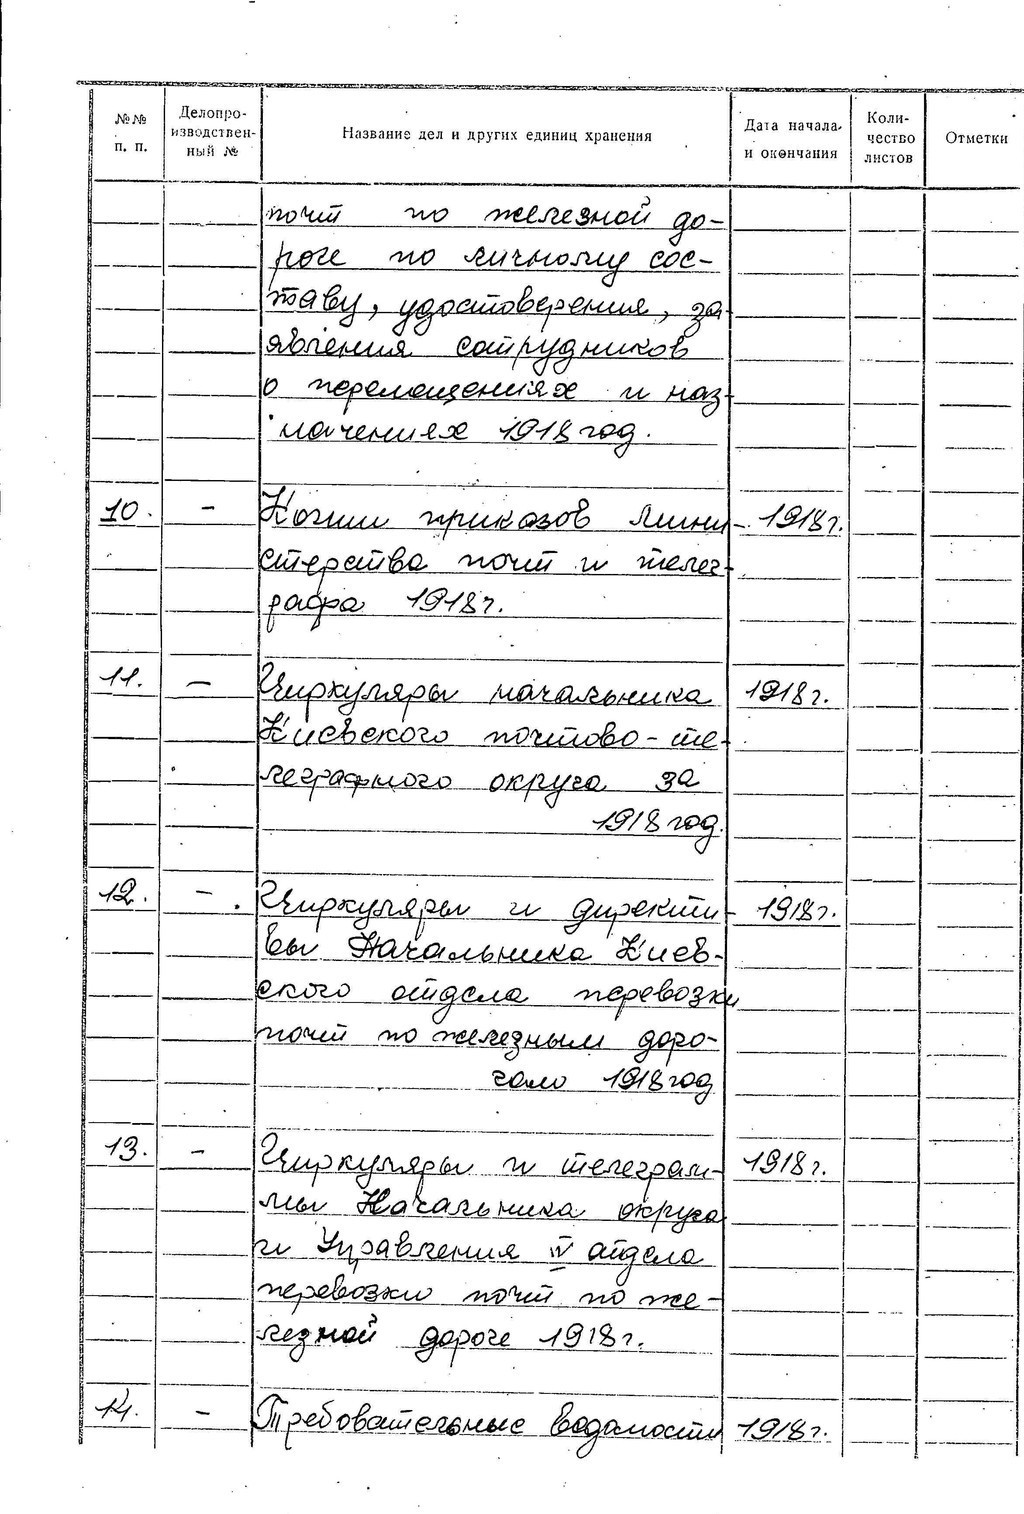 №№ п. п. Делопро-изводствен-ный № Название дел и других единиц хранения Дата начала и окончания Коли-чество листов Отметки
почт по железной до-
роге по личному сос-
таву, удостоверения, за-
явления сотрудников
о перемещениях и наз-
начениях 1918 год.
10. - Копии приказов Мини- 1918г.
стерства почт и телег-
рафа 1918г.
11. - Циркуляры начальника 1918г.
Киевского почтово-те-
леграфного округа за
1918 год.
12. - Циркуляры и директи- 1918г.
вы Начальника Киев-
ского отдела перевозки
почт по железным доро-
гам 1918 год
13. - Циркуляры и телеграм- 1918г.
мы Начальника округа
и Управления IV отдела
перевозки почт по же-
лезной дороге 1918г.
14. - Требовательные ведомости 1918г.